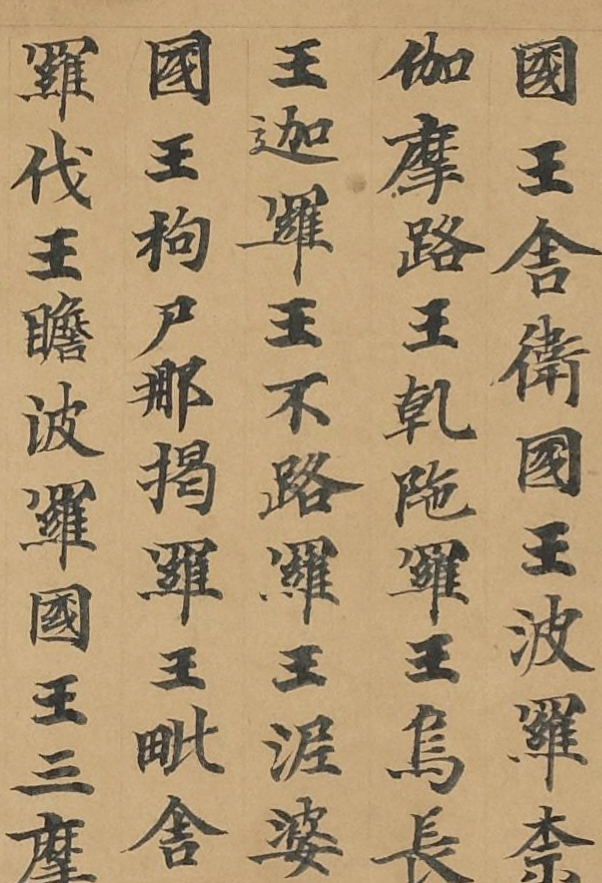 國王舍衛國王波羅奈
伽摩路王乹陁羅王烏長
王迦羅王不路羅王泥婆
國王枸尸那揭羅王毗舍
羅伐王瞻波羅國王三摩